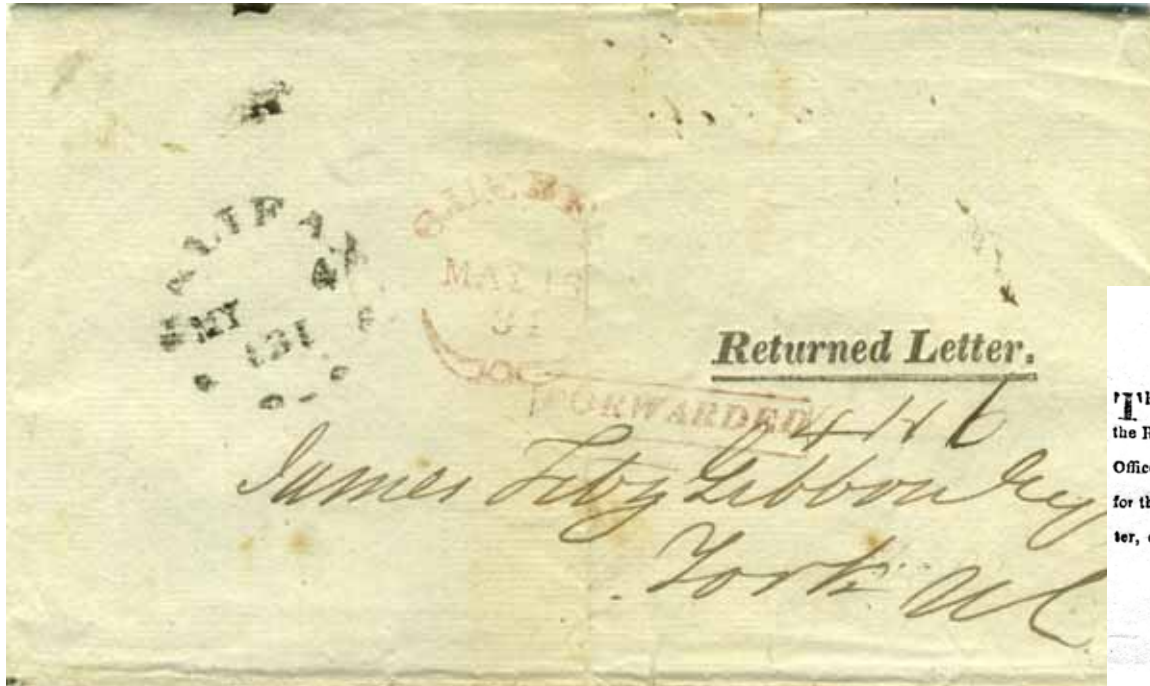 HALIFAX
MY 4
1831
QUEBEC
MAY
31
Returned Letter.
FORWARDED
James Fitz Gibbon Esq
York UC
the R
Offic
for th
ter,